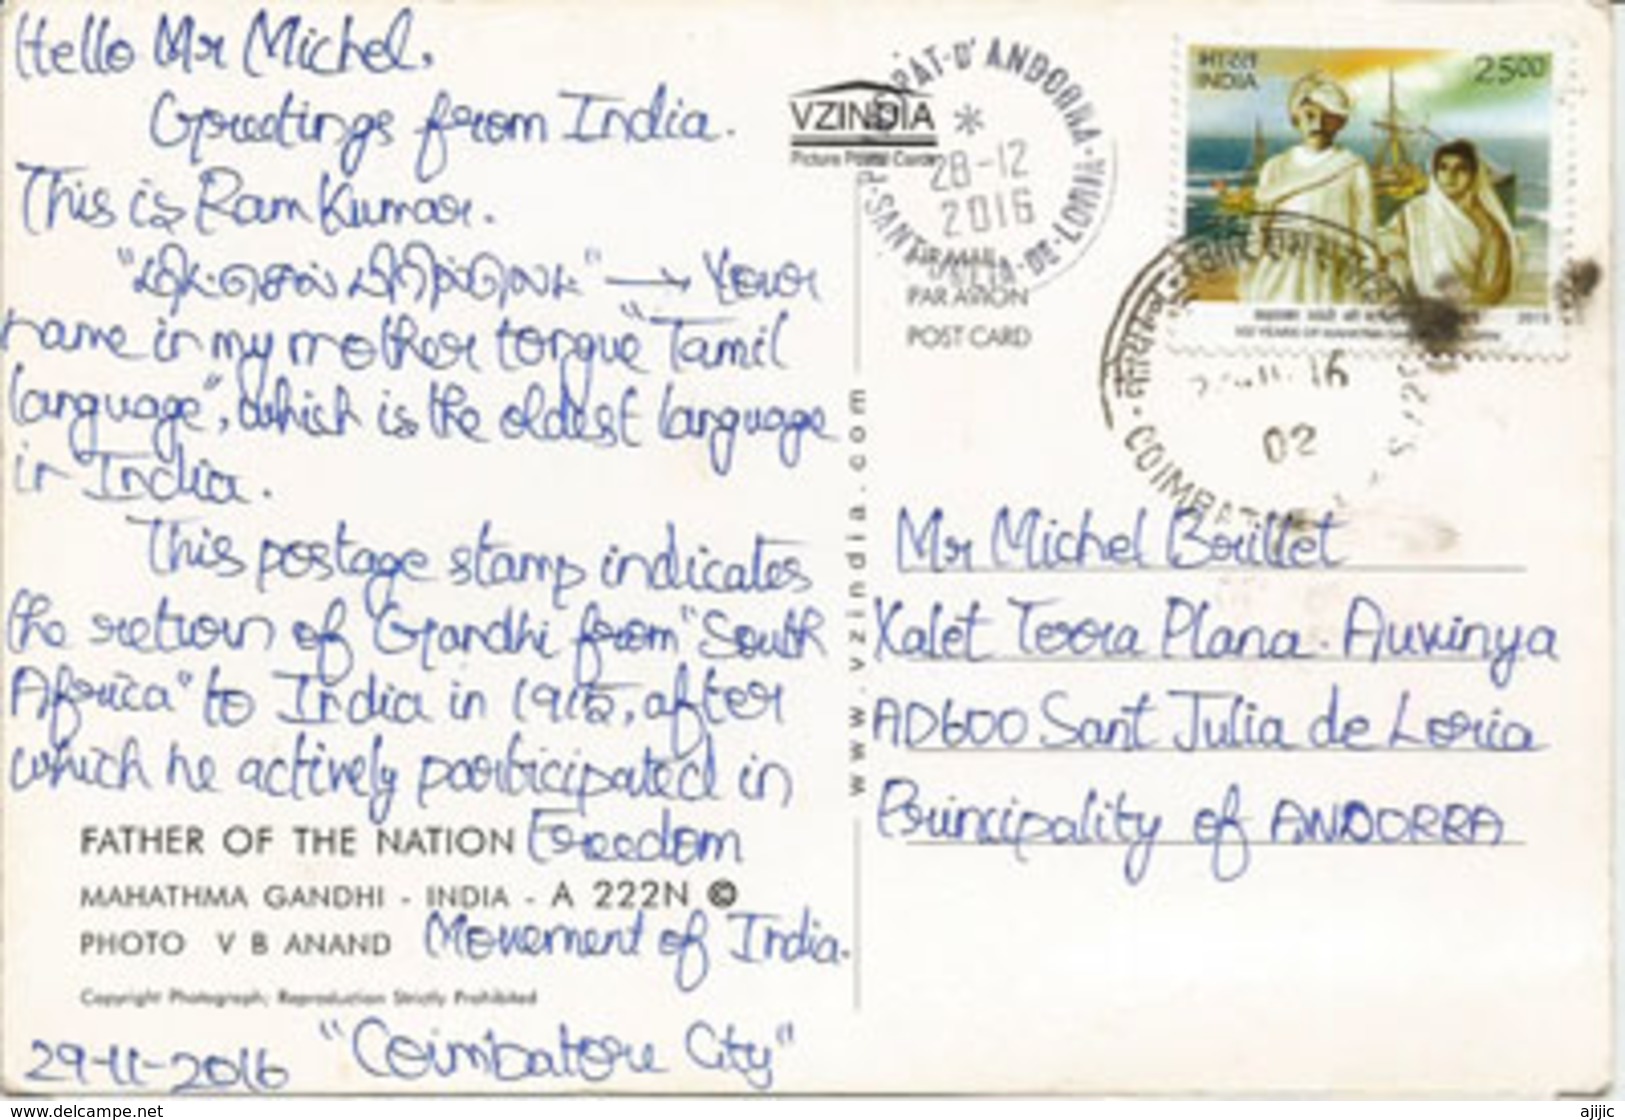 Hello Mr Michel,
Greetings from India.
This is Ram Kumar.
→ Your
name in my mother tongue "Tamil
language", which is the oldest language
in India.
This postage stamp indicates
the return of Gandhi from "South
Africa" to India in 1915, after
which he actively participated in
FATHER OF THE NATION Freedom
MAHATHMA GANDHI - INDIA - A 222N ©
PHOTO V B ANAND Movement of India.
Copyright Photograph; Reproduction Strictly Prohibited
29-11-2016 "Coimbatore City"
VZINDIA
Picture Postal Cards
PAR AVION
POST CARD
www.vzindia.com
PAT-D'ANDORRA
*
28-12
2016
SANT
DE-LORIA
भारत
INDIA
2500
COIMBAT
16
02
Mr Michel Brillet
Xalet Terra Plana. Auvinya
AD600 Sant Julia de Loria
Principality of ANDORRA
www.delcampe.net
ajijic